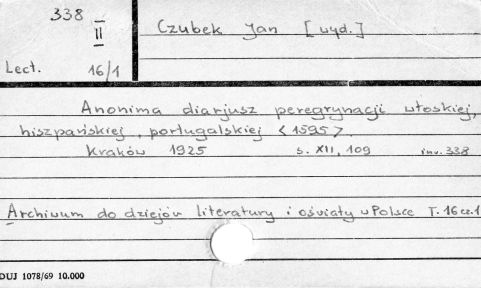 338 II
Czubek Jan [wyd.]
Lect. 16/1
Anonima diarjusz peregrynacji włoskiej,
hiszpańskiej, portugalskiej <1595>.
Kraków 1925 s. XII, 109 inv. 338
Archiwum do dziejów literatury i oświaty w Polsce T. 16 cz. 1
DUJ 1078/69 10.000